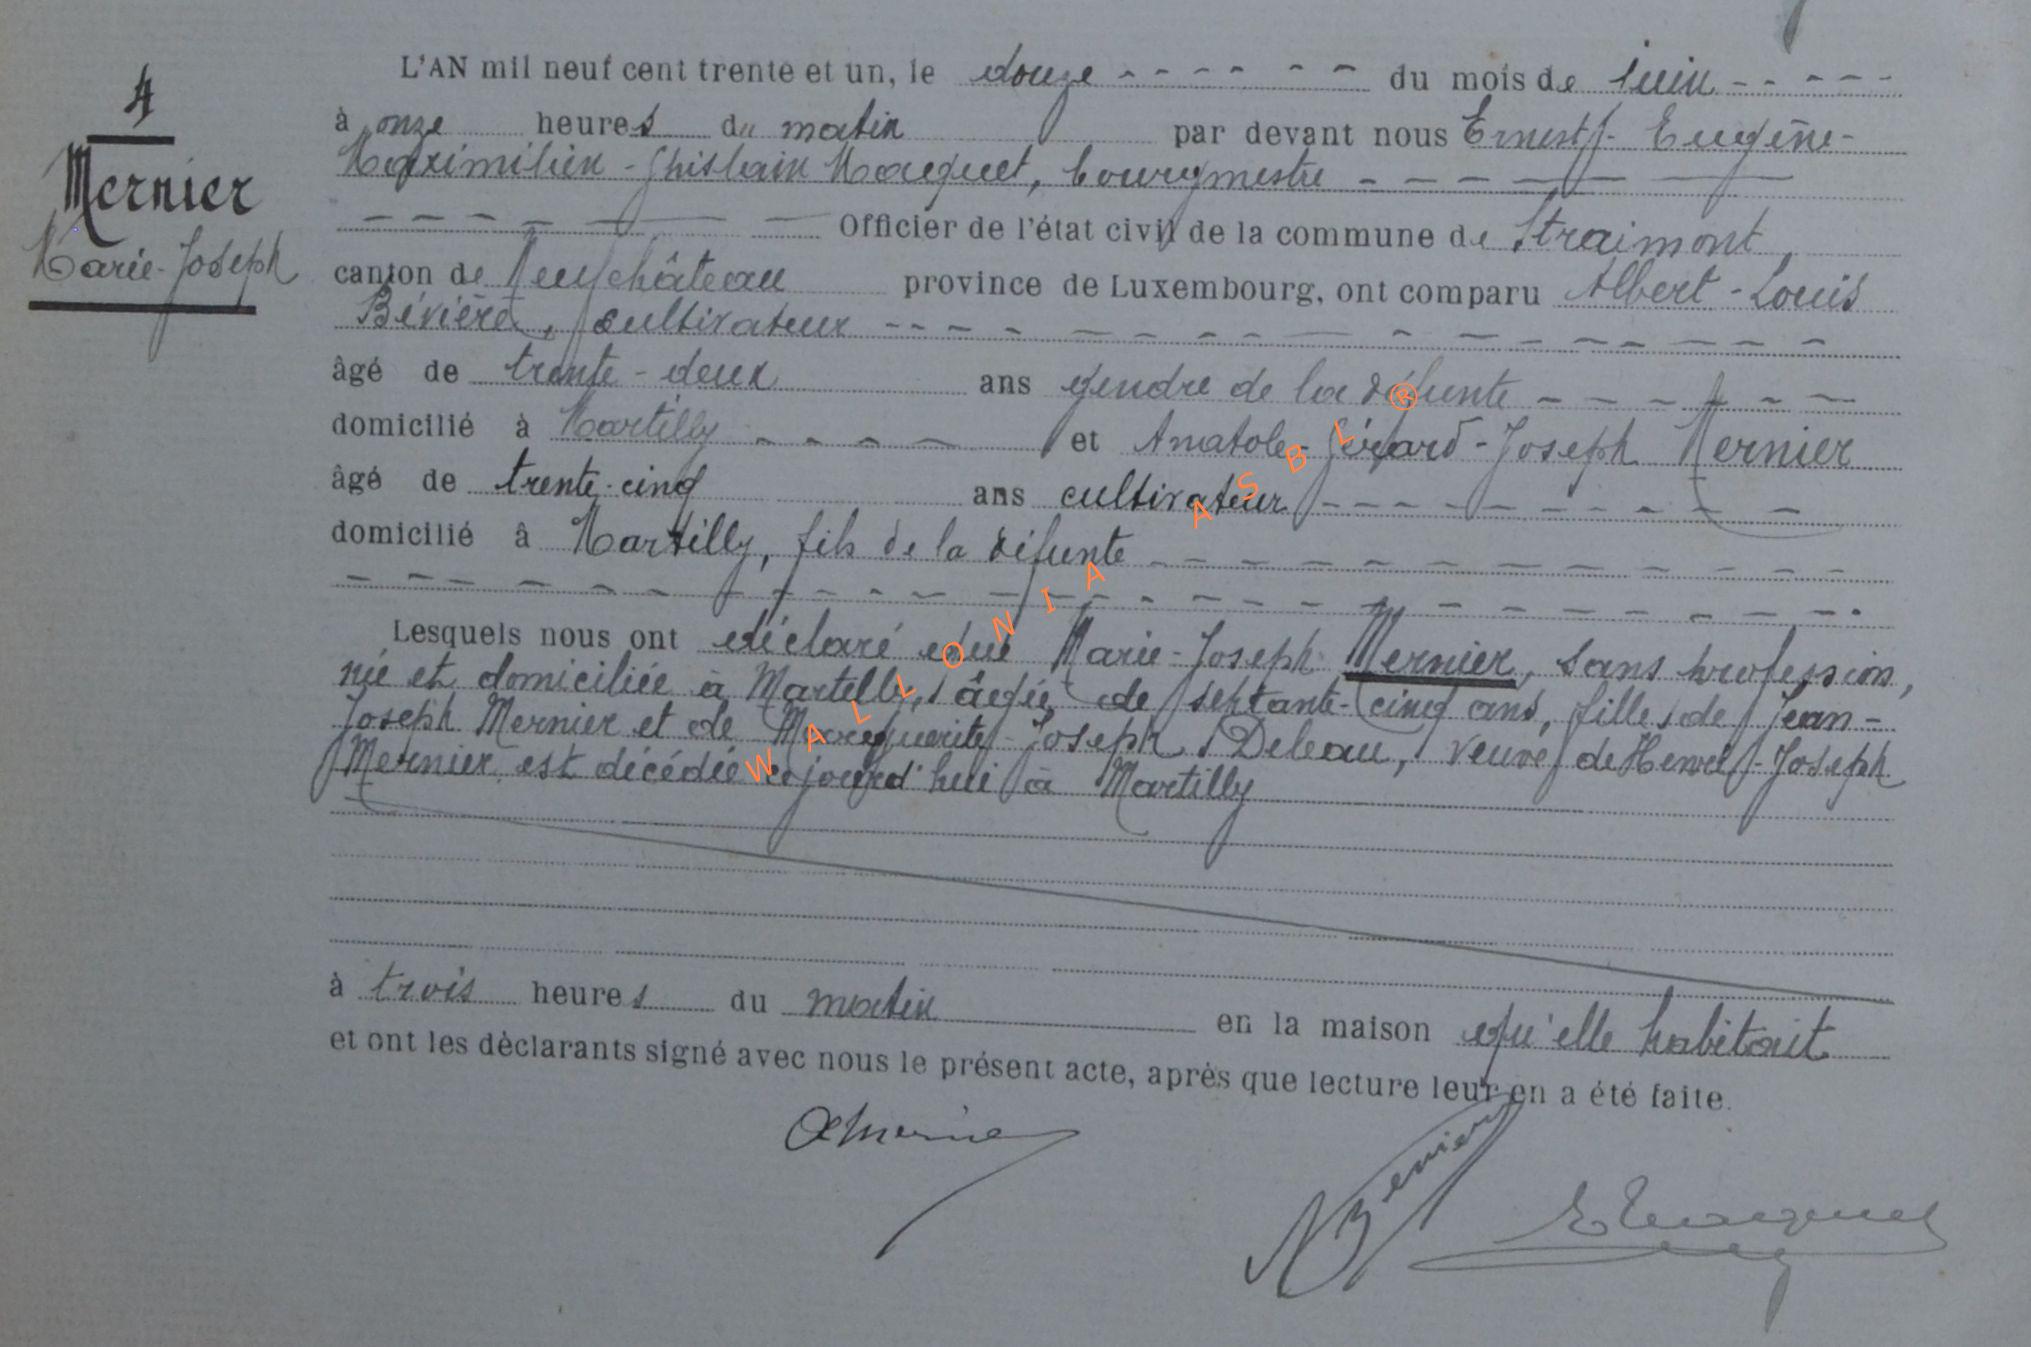 4
Mernier
Marie-Joseph
L'AN mil neuf cent trente et un, le douze du mois de Juin
à onze heures du matin par devant nous Ernest-Eugène-
Maximilien-Ghislain Macquet, bourgmestre
Officier de l'état civil de la commune de Straimont,
canton de Neufchâteau province de Luxembourg, ont comparu Albert-Louis
cultivateur
âgé de trente-deux ans gendre de la défunte
domicilié à Martilly et Anatole-Gérard-Joseph Mernier
âgé de trente-cinq ans cultivateur
domicilié à Martilly, fils de la défunte
Lesquels nous ont déclaré que Marie-Joseph Mernier, sans profession,
née et domiciliée à Martilly, âgée de septante-cinq ans, fille de Jean-
Joseph Mernier et de Marguerite-Joseph Deleau, veuve de Henri-Joseph
Mernier est décédée aujourd'hui à Martilly
à trois heures du matin en la maison qu'elle habitait
et ont les déclarants signé avec nous le présent acte, après que lecture leur en a été faite.
WALLONIA ASBL ®